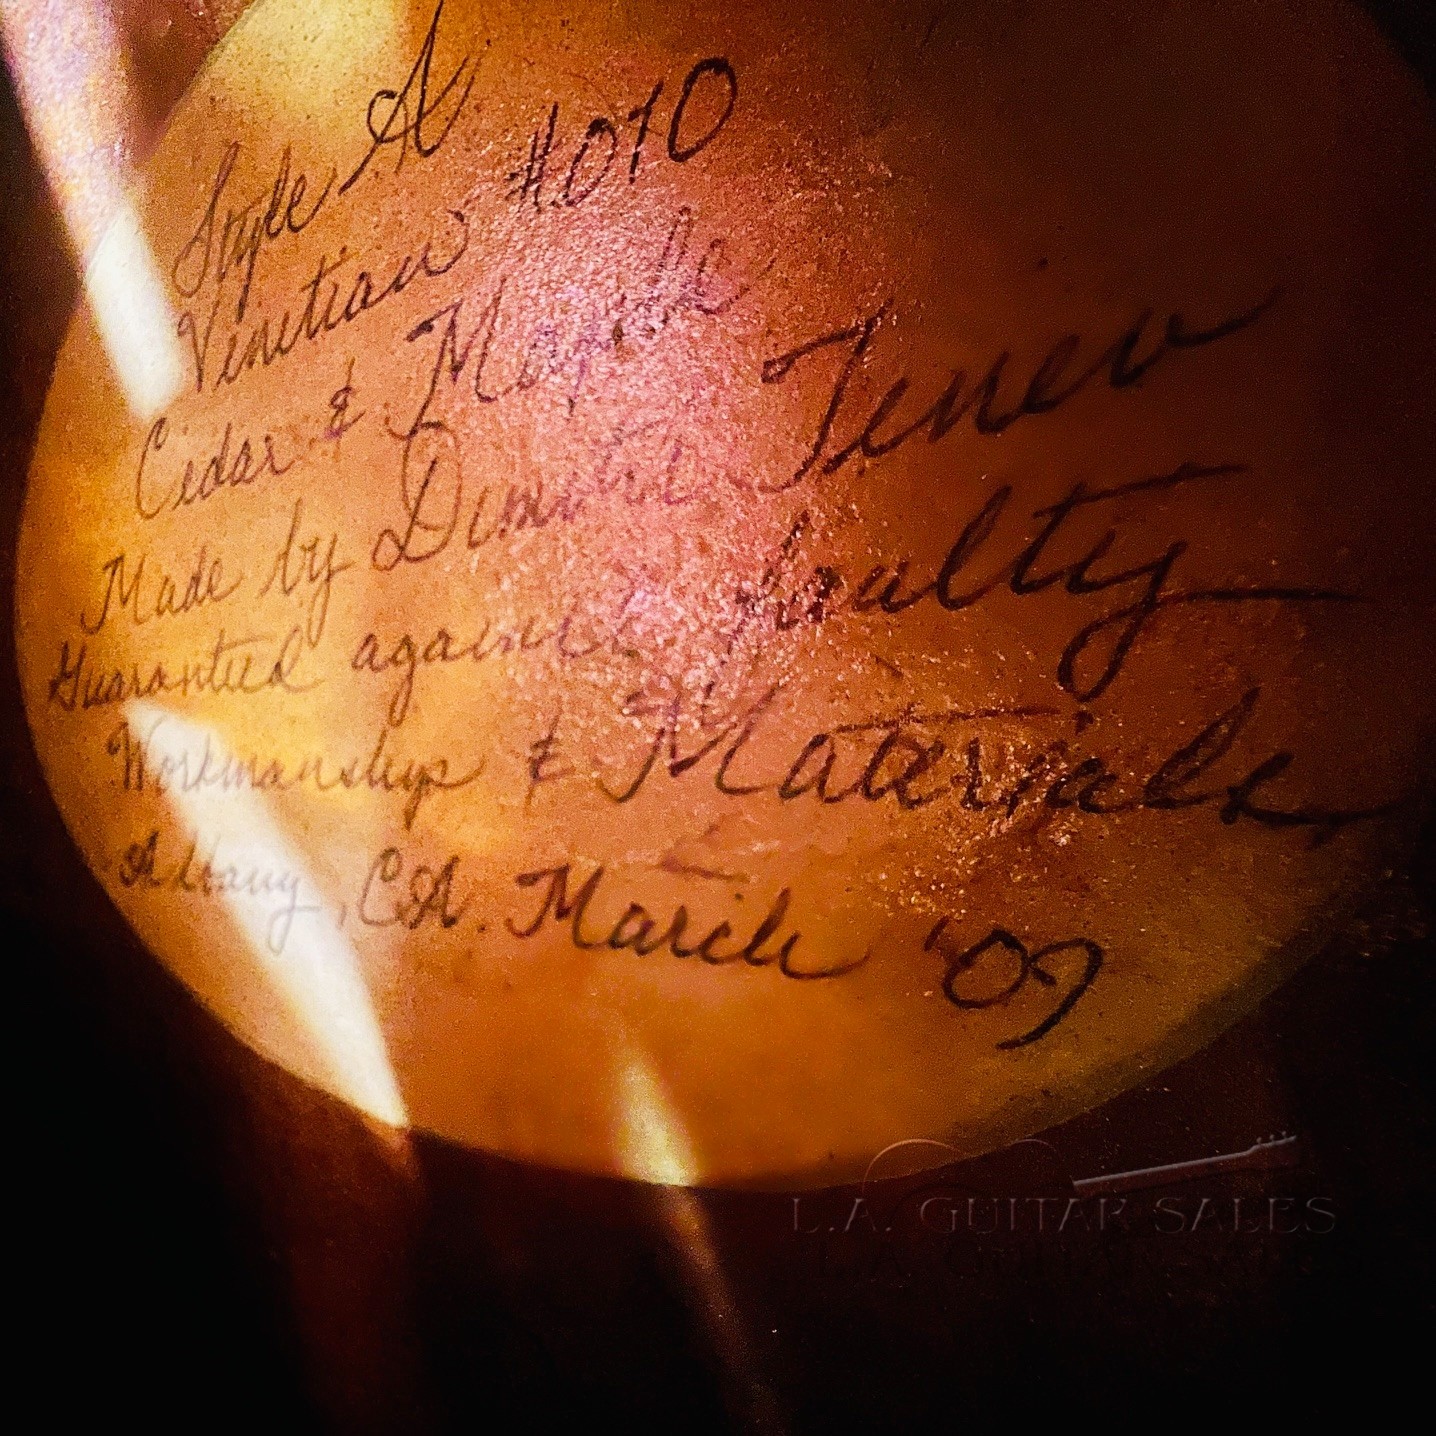 Style A
Venetian #070
Cedar & Maple
Made by Tenev
Guaranteed against faulty
Workmanship & Materials,
Albany, CA. March '07
L.A. GUITAR SALES